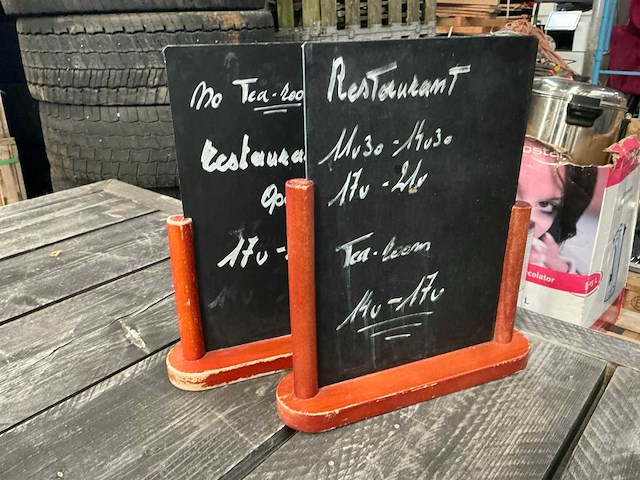 no Tea-roo
Restaura
Ope
17u -
Restaurant
11u30 - 14u30
17u - 21u
Tea-room
14u - 17u
colator